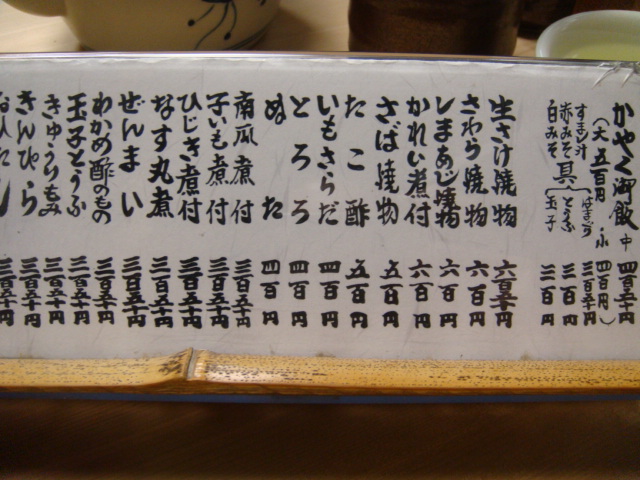 かやく御飯 中 四百五十円
(大 五百円 小 四百円)
すまし汁 はまぐり 三百五十円
赤みそ 具 とうふ 三百円
白みそ 玉子 三百円
生さけ焼物 六百五十円
さわら焼物 六百円
しまあじ焼物 六百円
かれい煮付 六百円
さば焼物 五百円
たこ酢 五百円
いもさらだ 四百円
とろろ 四百円
ぬた 四百円
南瓜煮付 三百五十円
子いも煮付 三百五十円
ひじき煮付 三百五十円
なす丸煮 三百五十円
ぜんまい 三百五十円
わかめ酢のもの 三百五十円
玉子とうふ 三百五十円
きゅうりもみ 三百五十円
きんぴら 三百五十円
おひたし 三百五十円